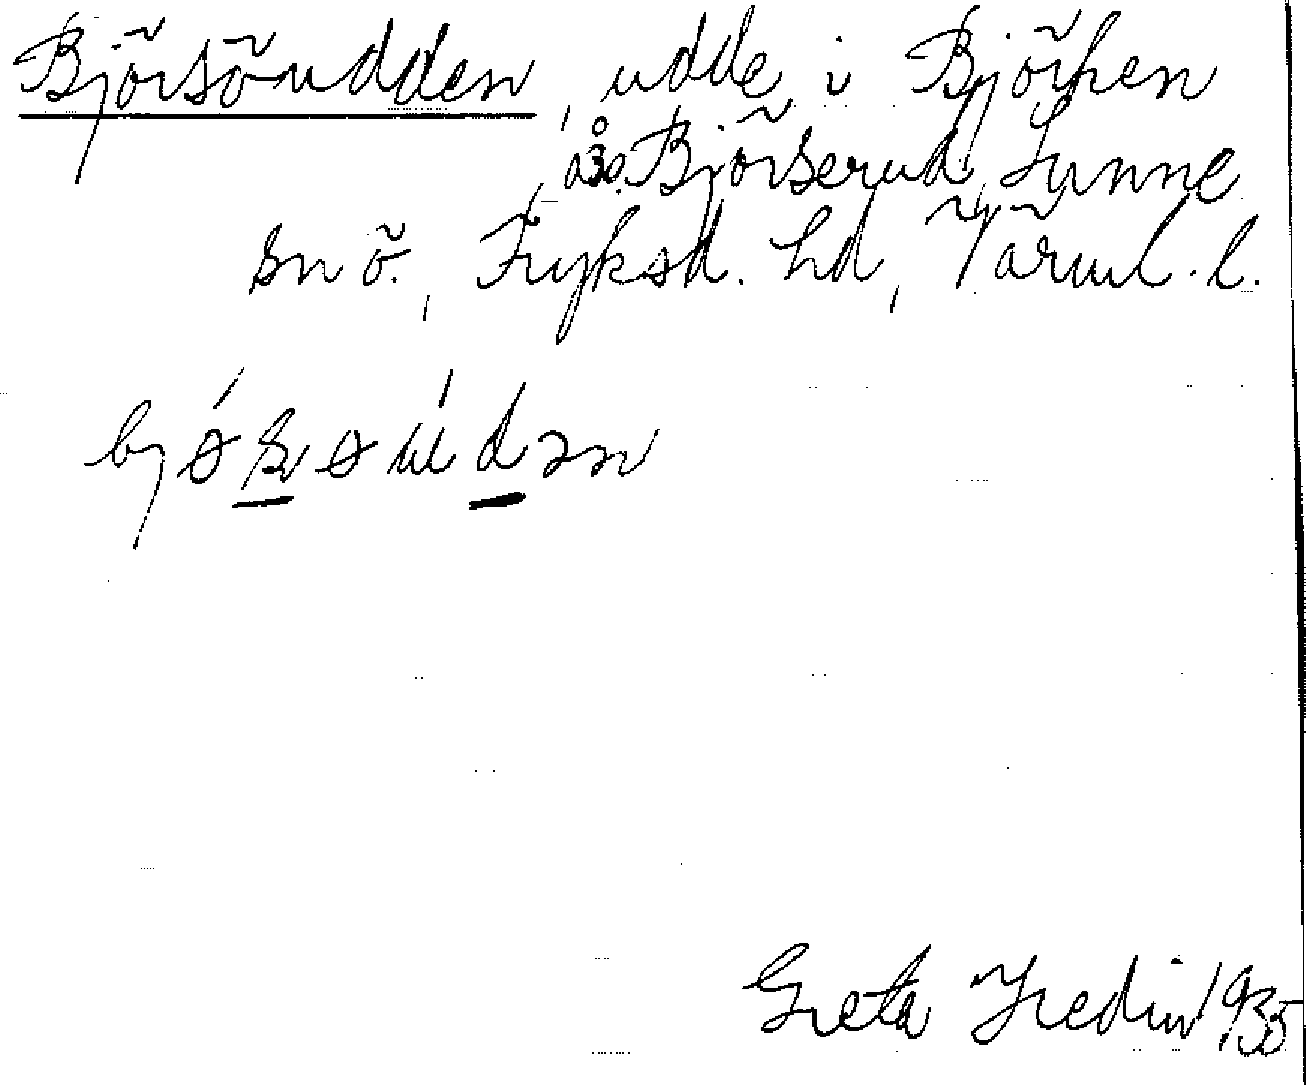 Björsöudden, udde i Björken
åso. Björserud, Sunne
sn ö., Fryksd. hd, Värml. l.
Greta Fredin 1935